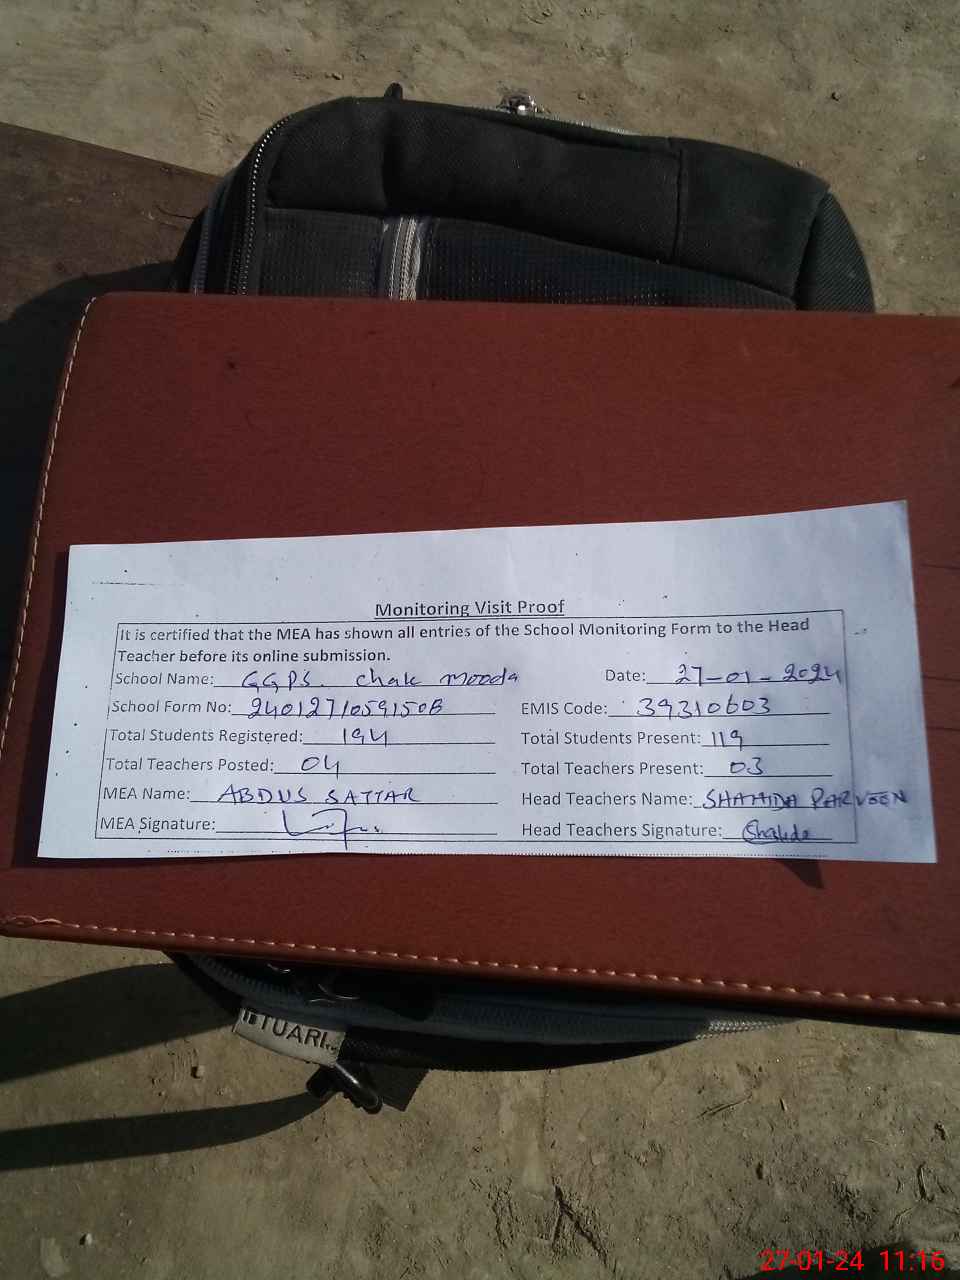 Monitoring Visit Proof
It is certified that the MEA has shown all entries of the School Monitoring Form to the Head
Teacher before its online submission.
School Name: GGPS. Chak Mooda Date: 27-01-2024
School Form No: 2401271059150B EMIS Code: 39310603
Total Students Registered: 194 Total Students Present: 119
Total Teachers Posted: 04 Total Teachers Present: 03
MEA Name: ABDUS SATTAR Head Teachers Name: SHAHIDA PARVEEN
MEA Signature: Head Teachers Signature: Shahida
TUARI
27-01-24 11:16